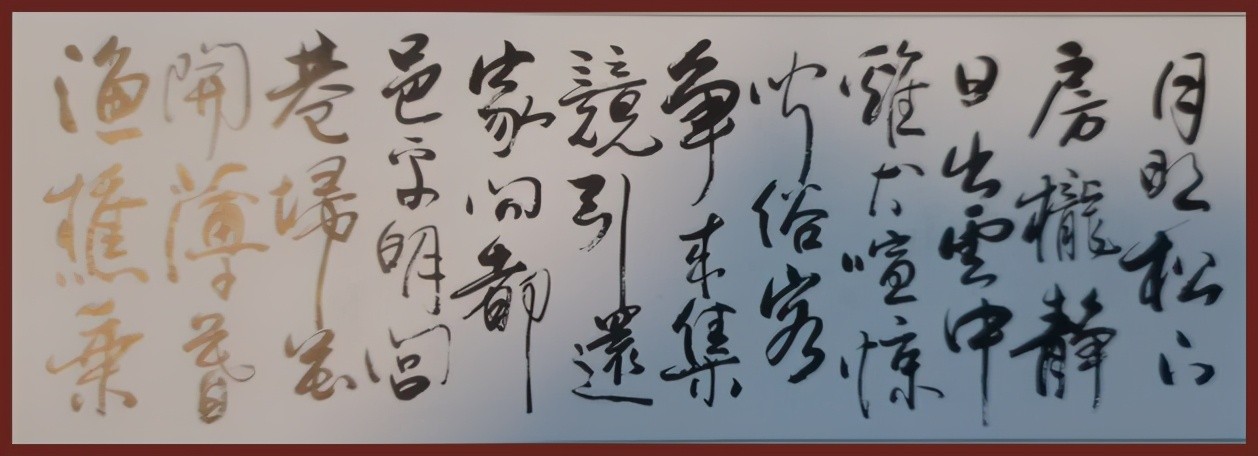 月明松下
房櫳靜
日出雲中
雞犬喧惊
聞俗客
爭来集
競引還
家問都
邑平明閭
巷掃花
開薄暮
漁樵乘